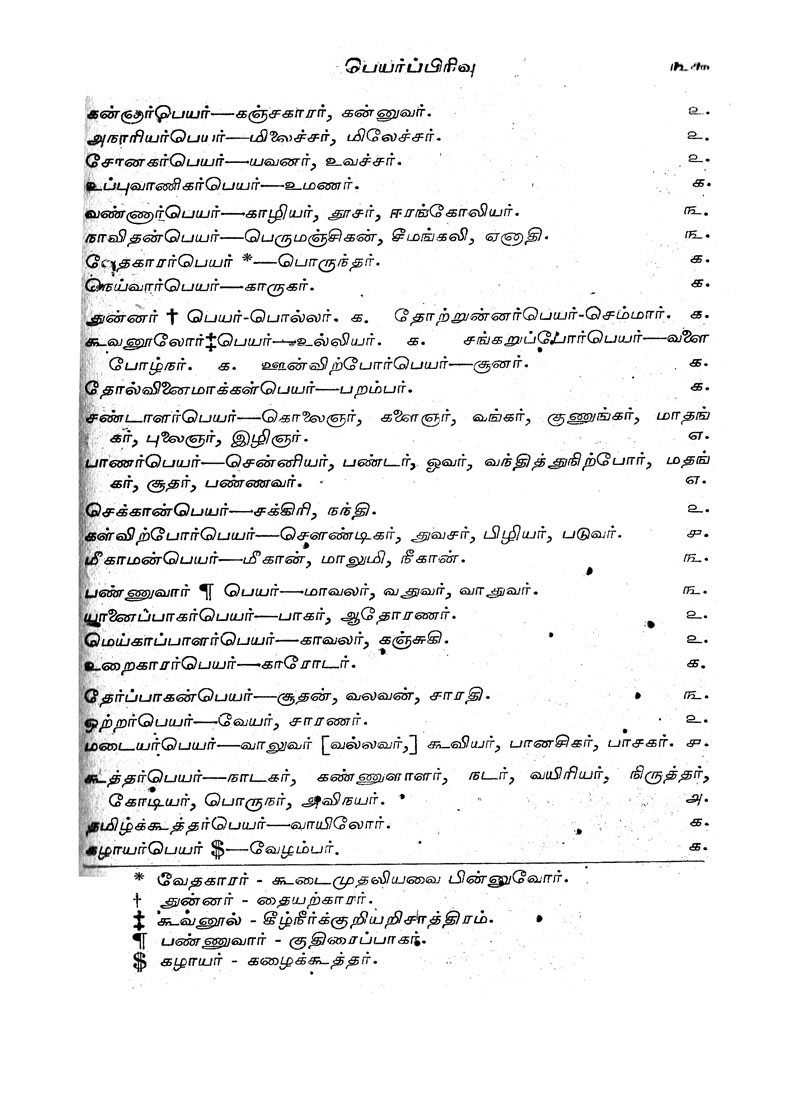 பெயர்ப்பிரிவு
கன்னார்பெயர்—கஞ்சகாரர், கன்னுவர். ௨.
அநாரியர்பெயர்—மிலைச்சர், மிலேச்சர். ௨.
சோனகர்பெயர்—யவனர், உவச்சர். ௨.
உப்புவாணிகர்பெயர்—உமணர். ௧.
வண்ணார்பெயர்—காழியர், தூசர், ஈரங்கோலியர். ௩.
நாவிதன்பெயர்—பெருமஞ்சிகன், சீமங்கலி, ஏனாதி. ௩.
வேதகாரர்பெயர் *—பொருந்தர். ௧.
நெய்வார்பெயர்—காருகர். ௧.
துன்னர் † பெயர்-பொல்லர். ௧. தோற்றுன்னர்பெயர்-செம்மார். ௧.
கூவனூலோர்‡பெயர்—உல்லியர். ௧. சங்கறுப்போர்பெயர்—வளை
போழ்நர். ௧. ஊன்விற்போர்பெயர்—சூனர். ௧.
தோல்வினைமாக்கள்பெயர்—பறம்பர். ௧.
சண்டாளர்பெயர்—கொலைஞர், களைஞர், வங்கர், குணுங்கர், மாதங்
கர், புலைஞர், இழிஞர். ௭.
பாணர்பெயர்—சென்னியர், பண்டர், ஓவர், வந்தித்துநிற்போர், மதங்
கர், சூதர், பண்ணவர். ௭.
செக்கான்பெயர்—சக்கிரி, நந்தி. ௨.
கள்விற்போர்பெயர்—சௌண்டிகர், துவசர், பிழியர், படுவர். ௪.
மீகாமன்பெயர்—மீகான், மாலுமி, நீகான். ௩.
பண்ணுவார் ¶ பெயர்—மாவலர், வதுவர், வாதுவர். ௩.
யானைப்பாகர்பெயர்—பாகர், ஆதோரணர். ௨.
மெய்காப்பாளர்பெயர்—காவலர், கஞ்சுகி. ௨.
உறைகாரர்பெயர்—காரோடர். ௧.
தேர்ப்பாகன்பெயர்—சூதன், வலவன், சாரதி. ௩.
ஒற்றர்பெயர்—வேயர், சாரணர். ௨.
மடையர்பெயர்—வாலுவர் [வல்லவர்,] கூவியர், பானசிகர், பாசகர். ௪.
கூத்தர்பெயர்—நாடகர், கண்ணுளாளர், நடர், வயிரியர், நிருத்தர்,
கோடியர், பொருநர், அவிநயர். ௮.
தமிழ்க்கூத்தர்பெயர்—வாயிலோர். ௧.
கழாயர்பெயர் $—வேழம்பர். ௧.
* வேதகாரர் - கூடைமுதலியவை பின்னுவோர்.
† துன்னர் - தையற்காரர்.
‡ கூவனூல் - கீழ்நீர்க்குறியறிசாத்திரம்.
¶ பண்ணுவார் - குதிரைப்பாகர்.
$ கழாயர் - கழைக்கூத்தர்.